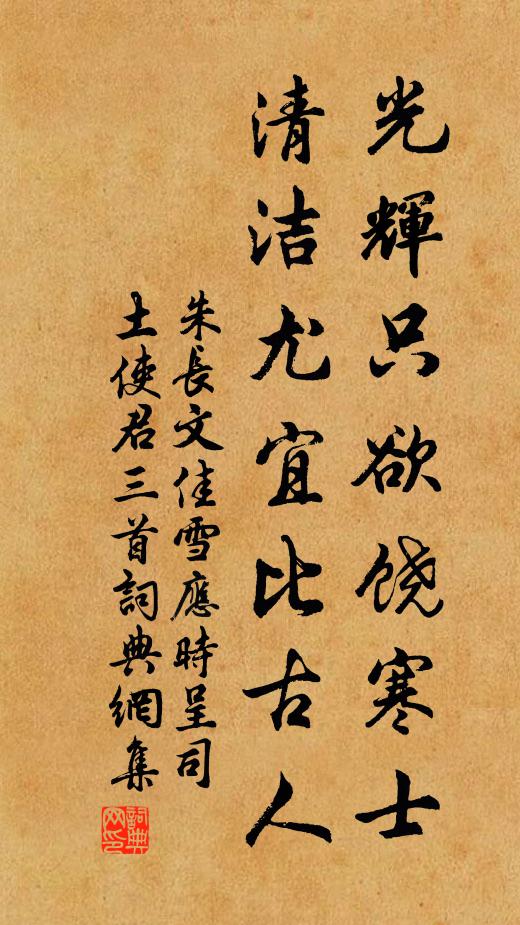 光輝只欲饶寒士
清洁尤宜比古人
朱長文佳雪應時呈司
土使君三首詞典網集
詞典网印